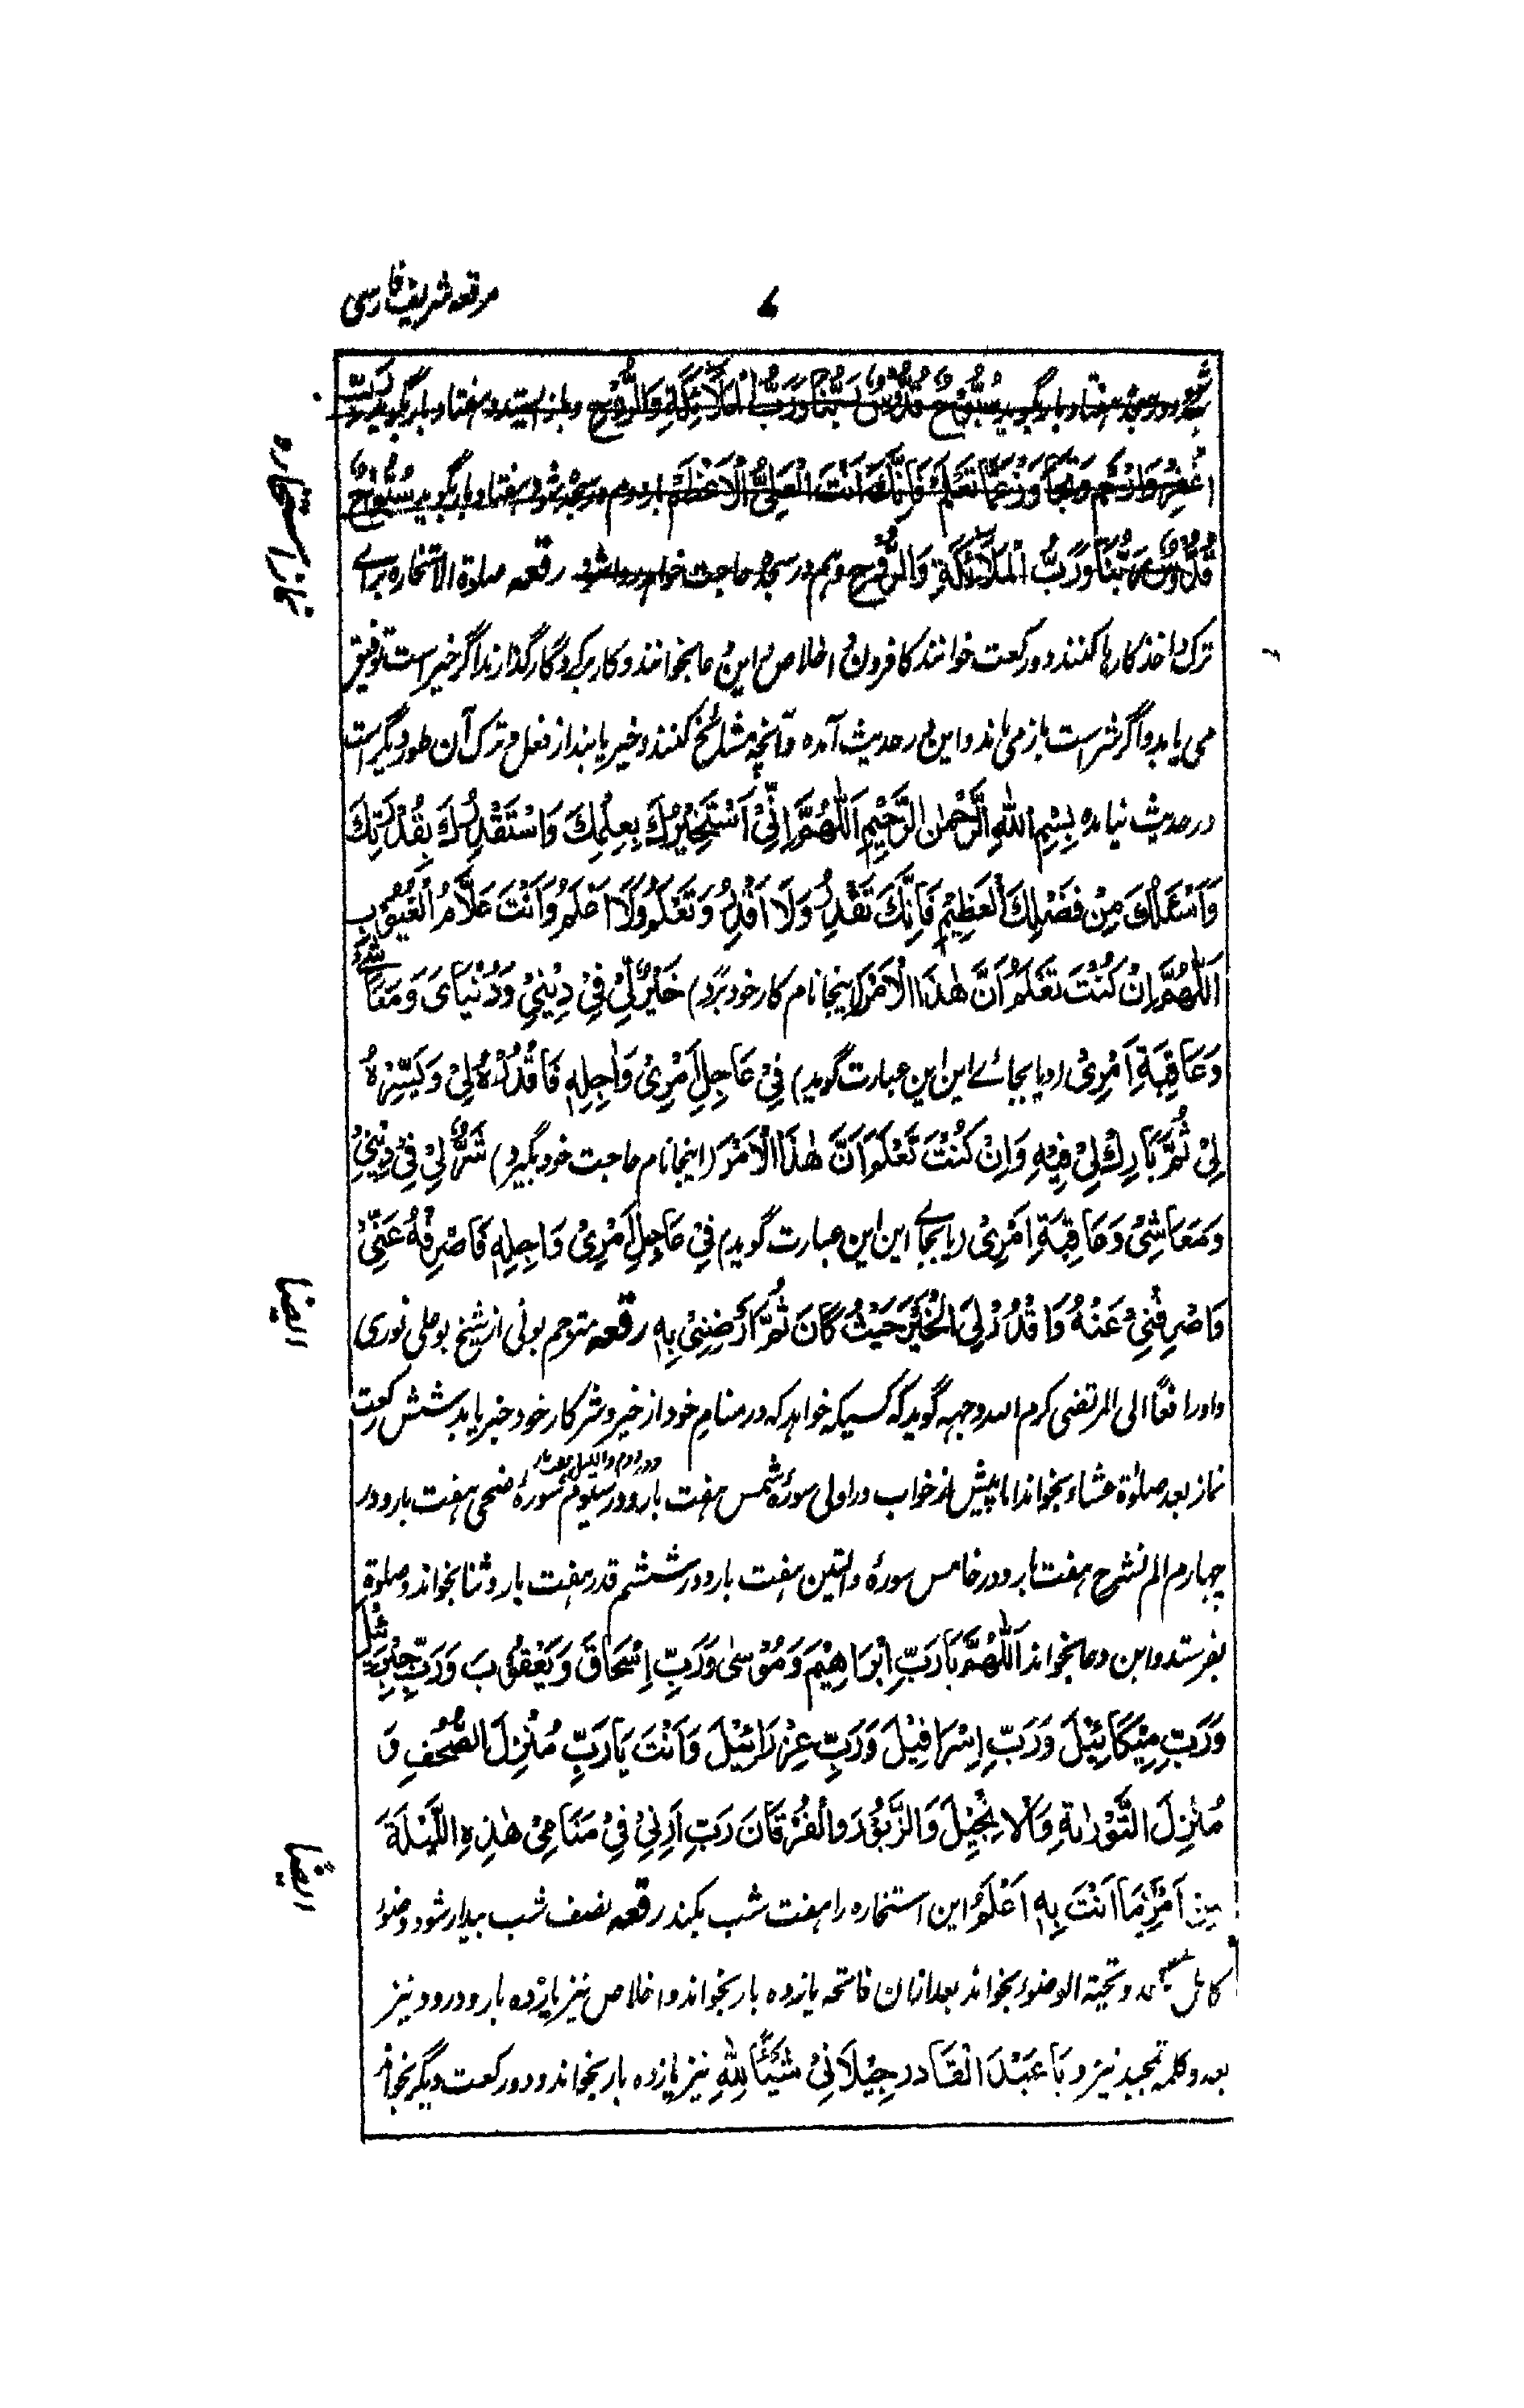 مرقعہ شریف فارسی
۷
شود و در سجدہ ہفتاد بار گوید سُبُّوْحٌ قُدُّوْسٌ رَبُّنَا وَرَبُّ الْمَلَآئِكَةِ وَالرُّوْحِ و باز استد و ہفتاد بار گوید رَبِّ
اغْفِرْ وَارْحَمْ وَتَجَاوَزْ عَمَّا تَعْلَمُ فَاِنَّكَ اَنْتَ الْعَلِیُّ الْاَعْظَمُ بار دوم در سجدہ شود ہفتاد بار گوید سُبُّوْحٌ
قُدُّوْسٌ رَبُّنَا وَرَبُّ الْمَلَآئِكَةِ وَالرُّوْحِ و ہم در سجدہ حاجت خواہد روا شود رقعہ صلوۃ الاستخارہ براے
ترک و اخذ کارہا کنند دو رکعت خوانند کافرون اخلاص و این دعا بخوانند و کار بر کردگار گذارند اگر خیر است توفیق
می یابد و اگر شر است باز می ماند و این در حدیث آمدہ و آنچہ مشائخ کنند و خبر یابند از فعل و ترک آن طور دیگر است
در حدیث نیامدہ بِسْمِ اللهِ الرَّحْمٰنِ الرَّحِیْمِ اَللّٰهُمَّ اِنِّیْ اَسْتَخِیْرُكَ بِعِلْمِكَ وَاسْتَقْدِرُكَ بِقُدْرَتِكَ
وَاَسْئَلُكَ مِنْ فَضْلِكَ الْعَظِیْمِ فَاِنَّكَ تَقْدِرُ وَلَا اَقْدِرُ وَتَعْلَمُ وَلَا اَعْلَمُ وَاَنْتَ عَلَّامُ الْغُیُوْبِ
اَللّٰهُمَّ اِنْ كُنْتَ تَعْلَمُ اَنَّ هٰذَا الْاَمْرَ (اینجا نام کار خود برد) خَیْرٌ لِّیْ فِیْ دِیْنِیْ وَدُنْیَایَ وَمَعَاشِیْ
وَعَاقِبَةِ اَمْرِیْ (و یا بجائے این این عبارت گوید) فِیْ عَاجِلِ اَمْرِیْ وَاٰجِلِهٖ فَاقْدُرْهُ لِیْ وَیَسِّرْهُ
لِیْ ثُمَّ بَارِكْ لِیْ فِیْهِ وَاِنْ كُنْتَ تَعْلَمُ اَنَّ هٰذَا الْاَمْرَ (اینجا نام حاجت خود بگیرد) شَرٌّ لِیْ فِیْ دِیْنِیْ
وَمَعَاشِیْ وَعَاقِبَةِ اَمْرِیْ (یا بجاے این این عبارت گوید) فِیْ عَاجِلِ اَمْرِیْ وَاٰجِلِهٖ فَاصْرِفْهُ عَنِّیْ
وَاصْرِفْنِیْ عَنْهُ وَاقْدُرْ لِیَ الْخَیْرَ حَیْثُ كَانَ ثُمَّ اَرْضِنِیْ بِهٖ رقعہ مترجم بونی از شیخ بوعلی نوری
و او رافعًا الی المرتضی کرم اللہ وجہہ گوید کہ کسیکہ خواہد کہ در منام خود از خیر و شر کار خود خبر یابد شش رکعت
نماز بعد صلوٰۃ عشاء بخواند اما پیش از خواب در اولی سورۂ شمس ہفت بار و در دوم واللیل ہفت بار و در سیوم سورۂ ضحی ہفت بار و در
چہارم الم نشرح ہفت بار و در خامس سورۂ والتین ہفت بار و در ششم قدر ہفت بار و ثنا بخواند و صلوۃ
بفرستد و این دعا بخواند اَللّٰهُمَّ یَا رَبِّ اِبْرَاهِیْمَ وَمُوْسٰی وَرَبِّ اِسْحَاقَ وَیَعْقُوْبَ وَرَبِّ جِبْرِیْئِلَ
وَرَبِّ مِیْكَائِیْلَ وَرَبِّ اِسْرَافِیْلَ وَرَبِّ عِزْرَائِیْلَ وَاَنْتَ یَا رَبِّ مُنْزِلَ الصُّحُفِ وَ
مُنْزِلَ التَّوْرٰىةِ وَالْاِنْجِیْلَ وَالزَّبُوْرَ وَالْفُرْقَانَ رَبِّ اَرِنِیْ فِیْ مَنَامِیْ هٰذِهِ اللَّیْلَةَ
مِنْ اَمْرِ مَا اَنْتَ بِهٖ اَعْلَمُ این استخارہ را ہفت شب بکند رقعہ نصف شب بیدار شود وضوء
کامل کند و تحیۃ الوضوء بخواند بعد ازان فاتحہ یازدہ بار بخواند و اخلاص نیز یازدہ بار و درود نیز
بعدہ کلمہ تمجید نیز و یَا عَبْدَ الْقَادِرِ جِیْلَانِیْ شَیْئًا لِلّٰهِ نیز یازدہ بار بخواند و دو رکعت دیگر بخواند
نماز استخارہ
ایضا
ایضا